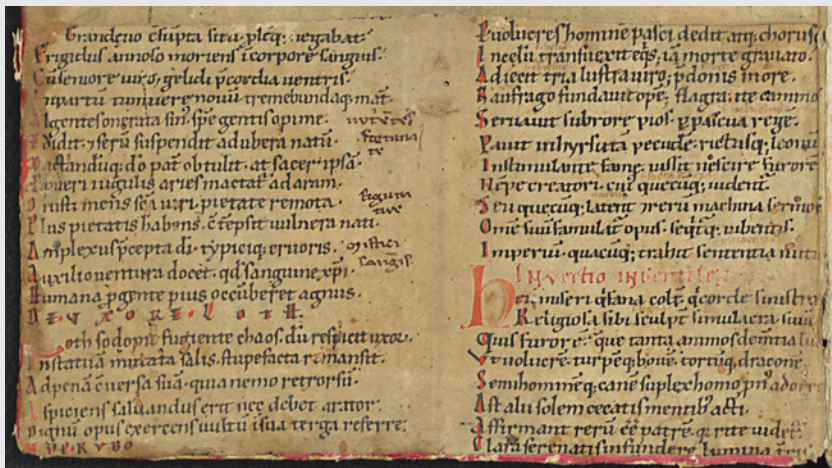 Grandeuo c̄supta situ pleq; negabat
Frigidus annoso moriens i corpore sanguis.
Cū seniore uiro. gelidi p̄cordia uentris.
In partū tumuere nouū tremebundaq; mat̄
Algentes onerata sin᷒ spē gentis opime.
Edidit ⁊ serū suspendit ad ubera natū.
Mactandūq; dō pat̄ obtulit. at sacer ipsā
P pueri iugulis aries mactat̄ ad aram.
O iusti mens sc̄a uiri. pietate remota.
Plus pietatis habens. c̄tēpsit uulnera nati
Amplexus p̄cepta di. typiciq; cruoris.
Auxilio uentura docet. qd sanguine xpi.
Humana p gente pius occūberet agnus.
DE VXORE LOTH
Loth sodomę fugiente chaos. dū respicit uxor.
In statuā mutata salis. stupefacta remansit.
Ad penā c̄uersa suā. quia nemo retrorsū
Aspiciens saluandus erit nec debet arator.
Dignū opus exercens uultū i sua terga referre
DE RVBO
fortuna
te
figura
tiue
mistici
sangis
Et uolucres hominē pasci dedit atq; chorusc
In celū transuexit eq̄s. iā morte grauato.
Adiecit tria lustra uiro. p̄donis in ore.
Naufrago fundauit opē. flagrante camino
Seruauit sub rore pios. p pascua regē.
Pauit in hyrsutā pecude. rictusq; leonū
Instimulante famę. iussit nescire furorē
Nēpe creatori cui quecūq; uident̄
Seu quecūq; latent rerū machina
Om̄e suū famulat̄ opus. seq̄t̄q; iubentis.
Imperiū quacūq; trahit sententia nutu
Inuectio in gentiles
Heu miseri q̇ uana colt̄. q̇ corde sinistro
Religiosa sibi sculpt̄ simulacra suū
Quis furor ē. que tanta animos dēmtia lu
Vt uolucrē. turpēq; bouē. tortūq; draconē.
Semihominēq; canē suplex homo p̄n᷒ adoret
Ast alii solem cecatis mentib᷒ acti
Affirmant rerū ēē patrē. q; rite uidet̄
Clara serenatis infundere lumina t